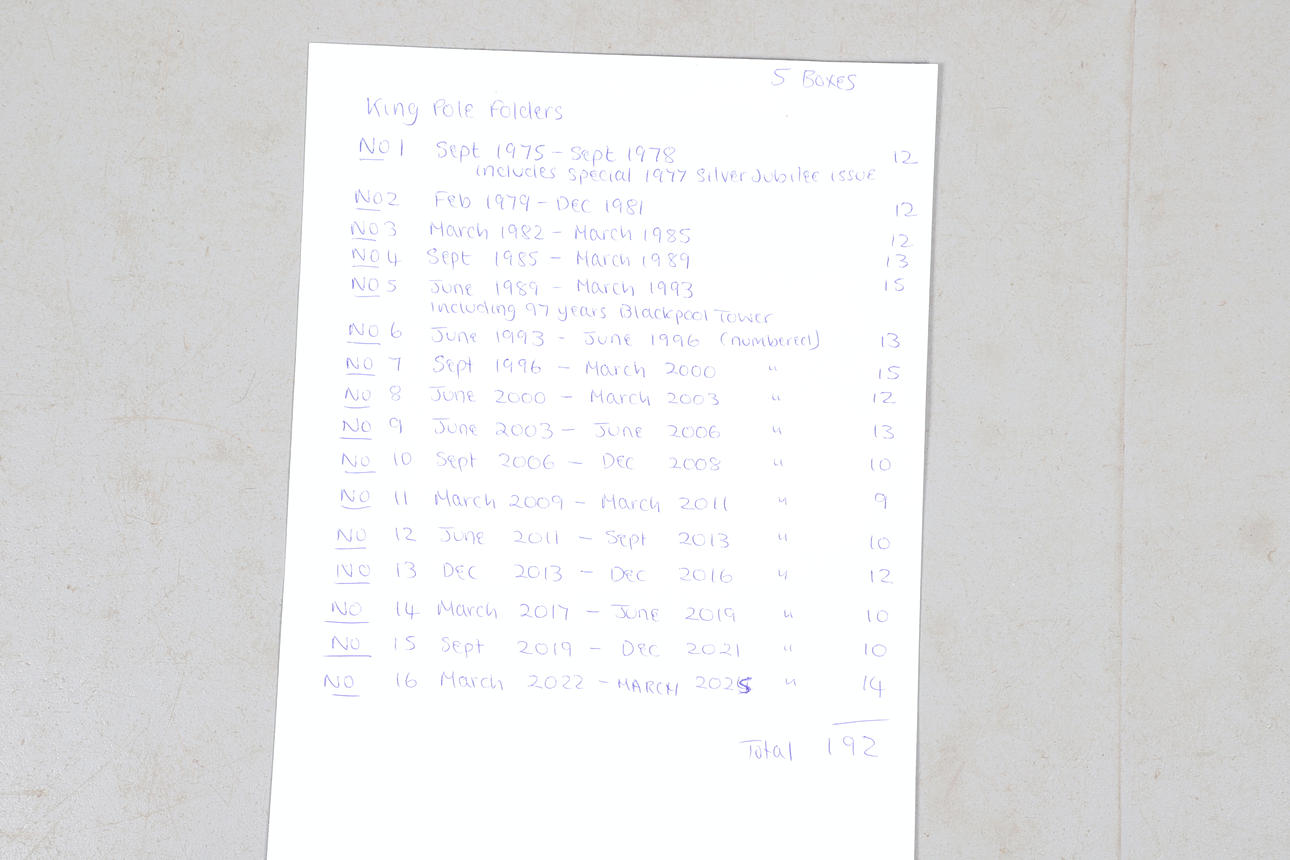 5 Boxes
King Pole Folders
No 1 Sept 1975 - Sept 1978 12
includes special 1977 Silver Jubilee issue
No 2 Feb 1979 - Dec 1981 12
No 3 March 1982 - March 1985 12
No 4 Sept 1985 - March 1989 13
No 5 June 1989 - March 1993 15
including 97 years Blackpool Tower
No 6 June 1993 - June 1996 (numbered) 13
No 7 Sept 1996 - March 2000 " 15
No 8 June 2000 - March 2003 " 12
No 9 June 2003 - June 2006 " 13
No 10 Sept 2006 - Dec 2008 " 10
No 11 March 2009 - March 2011 " 9
No 12 June 2011 - Sept 2013 " 10
No 13 Dec 2013 - Dec 2016 " 12
No 14 March 2017 - June 2019 " 10
No 15 Sept 2019 - Dec 2021 " 10
No 16 March 2022 - MARCH 2025 " 14
Total 192